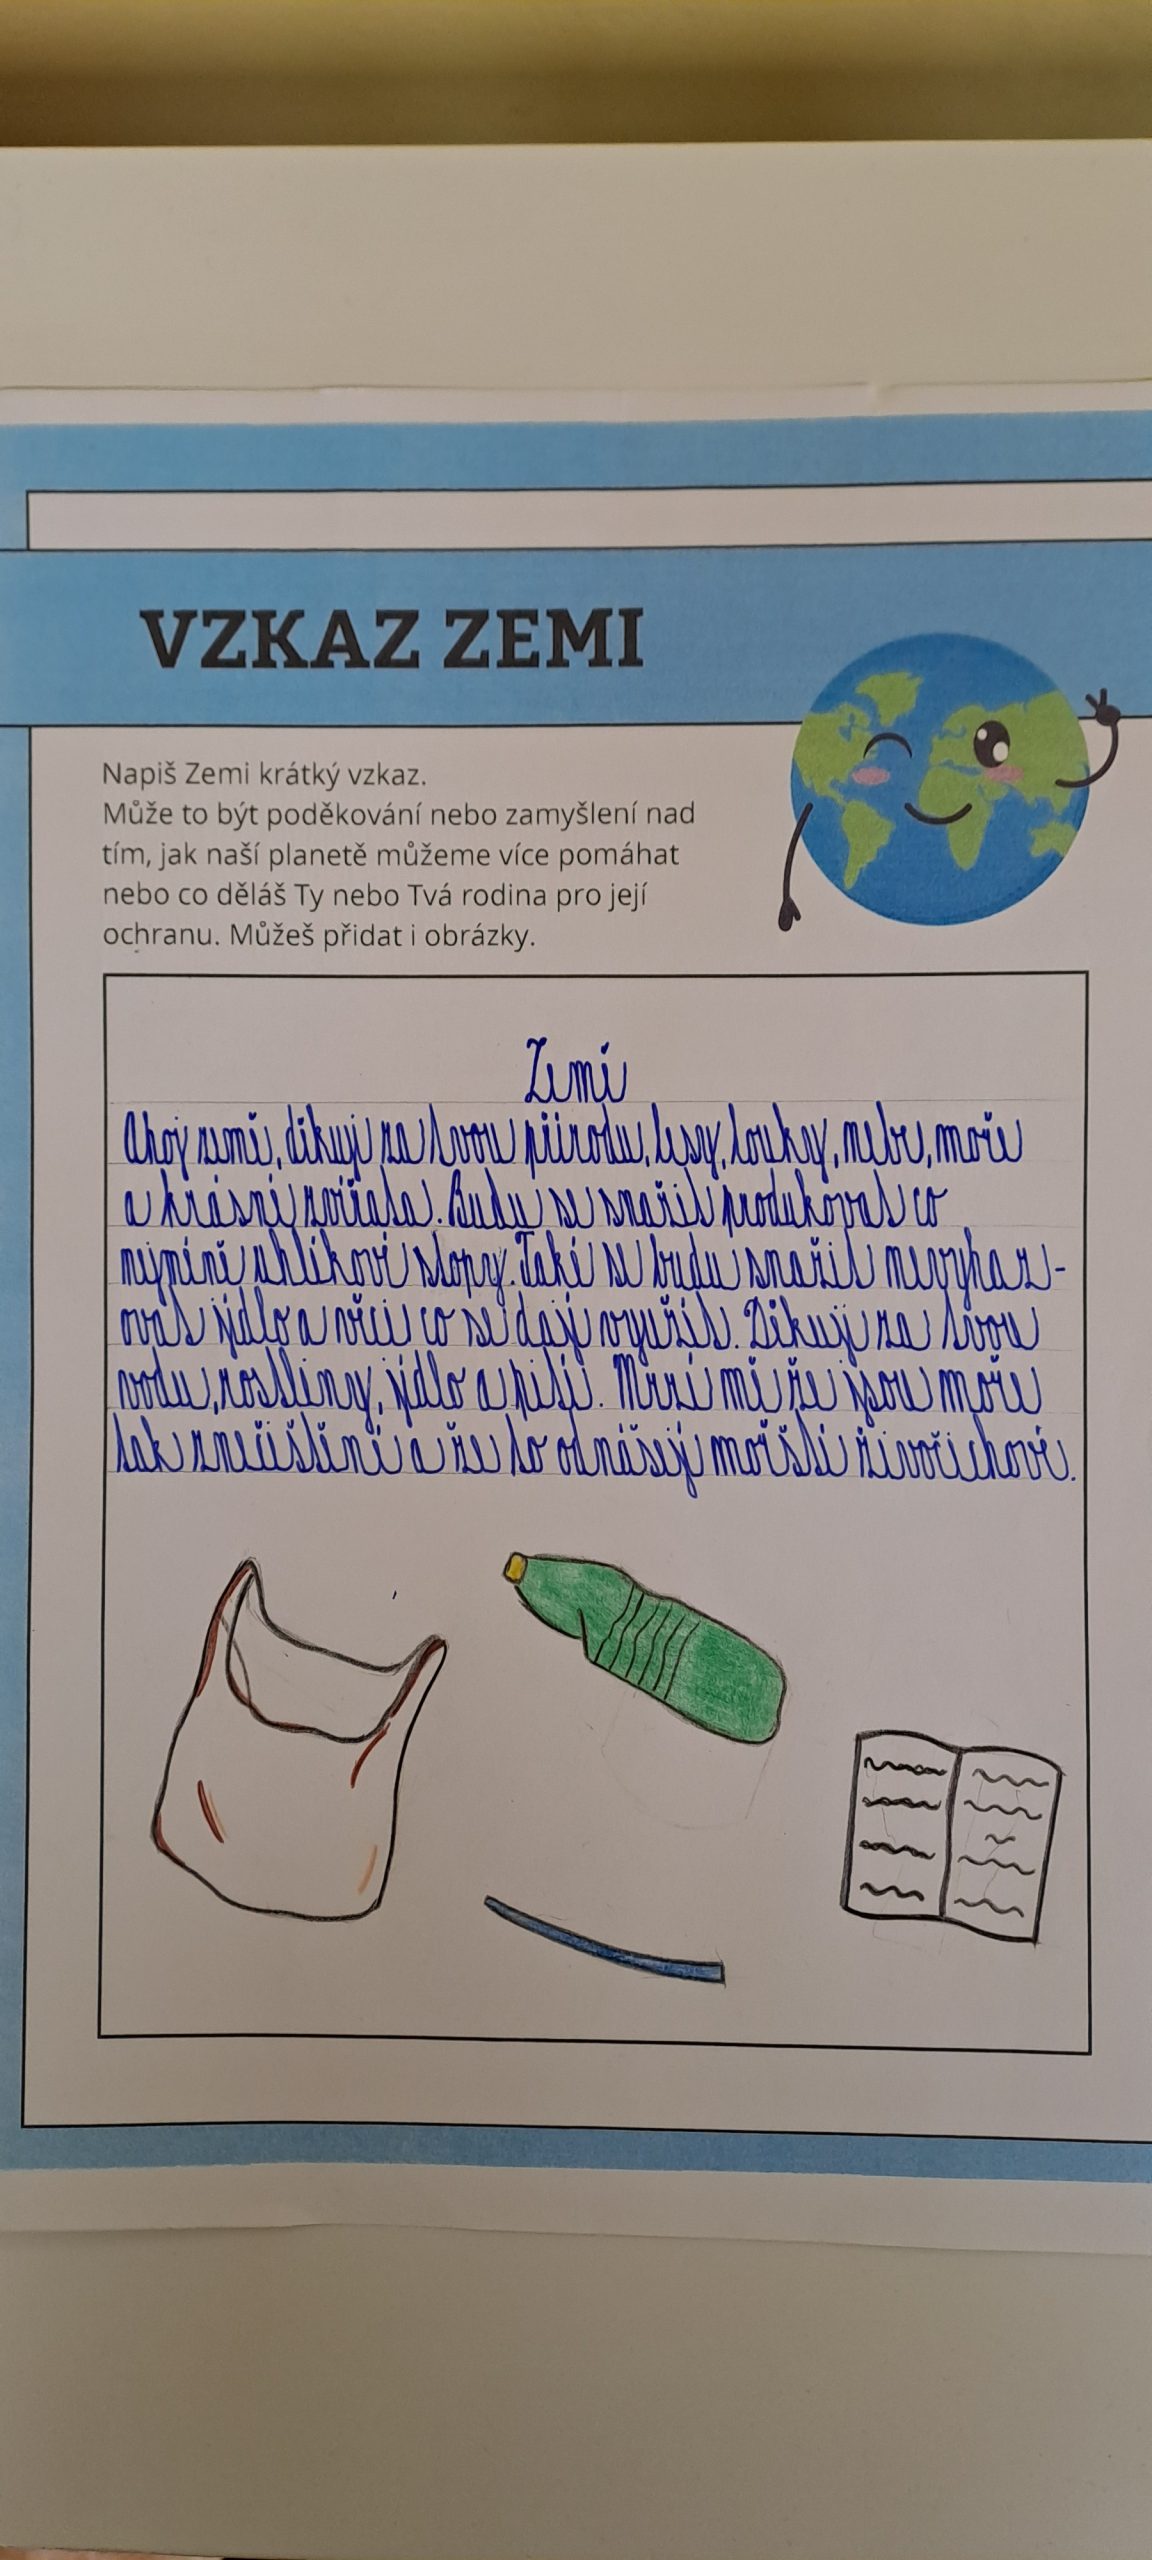 VZKAZ ZEMI
Napiš Zemi krátký vzkaz.
Může to být poděkování nebo zamyšlení nad
tím, jak naší planetě můžeme více pomáhat
nebo co děláš Ty nebo Tvá rodina pro její
ochranu. Můžeš přidat i obrázky.
Zemi
Ahoj země, děkuji za tvou přírodu, lesy, louky, nebe, moře
a krásné zvířata. Budu se snažit produkovat co
nejméně uhlíkové stopy. Také se budu snažit nevyhaz-
ovat jídlo a věci co se dají využít. Děkuji za tvou
vodu, rostliny, jídlo a pití. Mrzí mě že jsou moře
tak znečištění a že to odnášejí mořští živočichové.